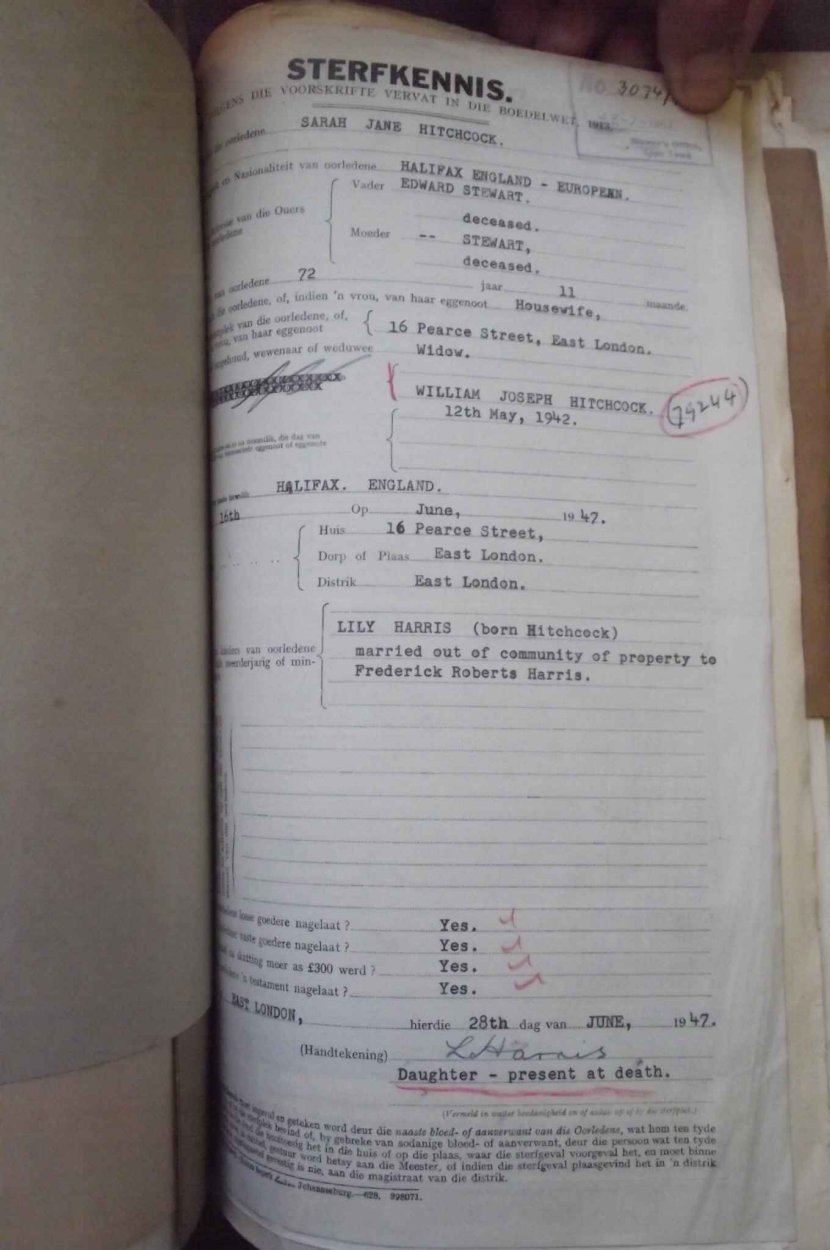 STERFKENNIS.
DIE VOORSKRIFTE VERVAT IN DIE BOEDELWET, 1913.
No. 3074/
die oorledene SARAH JANE HITCHCOCK.
en Nasionaliteit van oorledene HALIFAX ENGLAND - EUROPEAN.
Vader EDWARD STEWART.
van die Ouers
deceased.
Moeder -- STEWART,
deceased.
van oorledene 72 jaar 11 maande.
die oorledene, of, indien 'n vrou, van haar eggenoot Housewife,
van die oorledene, of,
van haar eggenoot 16 Pearce Street, East London.
wewenaar of weduwee Widow.
WILLIAM JOSEPH HITCHCOCK. 79244
12th May, 1942.
HALIFAX. ENGLAND.
16th Op June, 1947.
Huis 16 Pearce Street,
Dorp of Plaas East London.
Distrik East London.
LILY HARRIS (born Hitchcock)
van oorledene married out of community of property to
meerderjarig of min- Frederick Roberts Harris.
losse goedere nagelaat ? Yes.
vaste goedere nagelaat ? Yes.
skatting meer as £300 werd ? Yes.
'n testament nagelaat ? Yes.
EAST LONDON, hierdie 28th dag van JUNE, 1947.
(Handtekening) L Harris
Daughter - present at death.
(Vermeld in watter hoedanigheid en of
en geteken word deur die naaste bloed- of aanverwant van die Oorledene, wat hom ten tyde
bevind of, by gebreke van sodanige bloed- of aanverwant, deur die persoon wat ten tyde
het in die huis of op die plaas, waar die sterfgeval voorgeval het, en moet binne
gestuur word hetsy aan die Meester, of indien die sterfgeval plaasgevind het in 'n distrik
gevestig is nie, aan die magistraat van die distrik.
Johannesburg.—628. 398071.